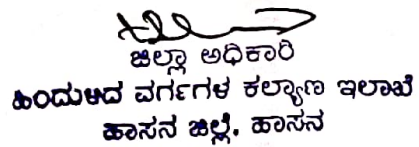 ಜಿಲ್ಲಾ ಅಧಿಕಾರಿ
ಹಿಂದುಳಿದ ವರ್ಗಗಳ ಕಲ್ಯಾಣ ಇಲಾಖೆ
ಹಾಸನ ಜಿಲ್ಲೆ, ಹಾಸನ